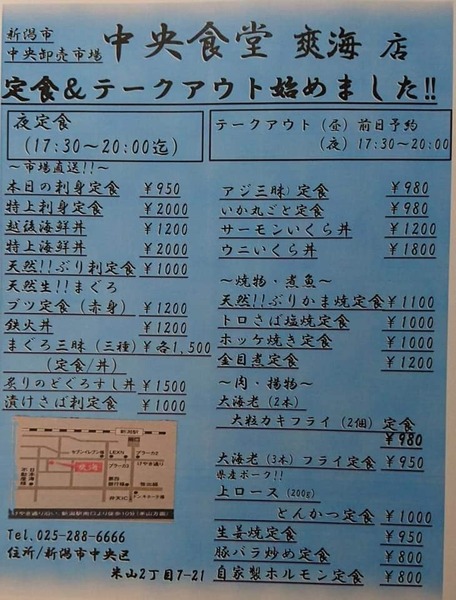 新潟市
中央卸売市場
中央食堂 爽海 店
定食＆テークアウト始めました!!
夜定食
(17:30～20:00迄)
テークアウト (昼) 前日予約
(夜) 17:30～20:00
～市場直送!!～
本日の刺身定食 ￥950
特上刺身定食 ￥2000
越後海鮮丼 ￥1200
特上海鮮丼 ￥2000
天然!!ぶり刺定食 ￥1000
天然生!!まぐろ
ブツ定食 (赤身) ￥1200
鉄火丼 ￥1200
まぐろ三昧 (三種) ￥各1,500
(定食/丼)
炙りのどぐろすし丼 ￥1500
漬けさば刺定食 ￥1000
アジ三昧) 定食 ￥980
いか丸ごと定食 ￥980
サーモンいくら丼 ￥1200
ウニいくら丼 ￥1800
～焼物・煮魚～
天然!!ぶりかま焼定食 ￥1100
トロさば塩焼定食 ￥1000
ホッケ焼き定食 ￥1000
金目煮定食 ￥1200
～肉・揚物～
大海老 (2本)
大粒カキフライ (2個) 定食
￥980
大海老 (3本) フライ定食 ￥950
県産ポーク!!
上ロース (200g)
とんかつ定食 ￥1000
生姜焼定食 ￥950
豚バラ炒め定食 ￥800
自家製ホルモン定食 ￥800
新潟駅
セブンイレブン様
LEXN
プラーカ2
けやき通り
プラーカ3
爽海
弁天3C
ドン・キホーテ様
けやき通り沿い、新潟駅南口より徒歩10分(米山方面)
Tel.025-288-6666
住所/新潟市中央区
米山2丁目7-21